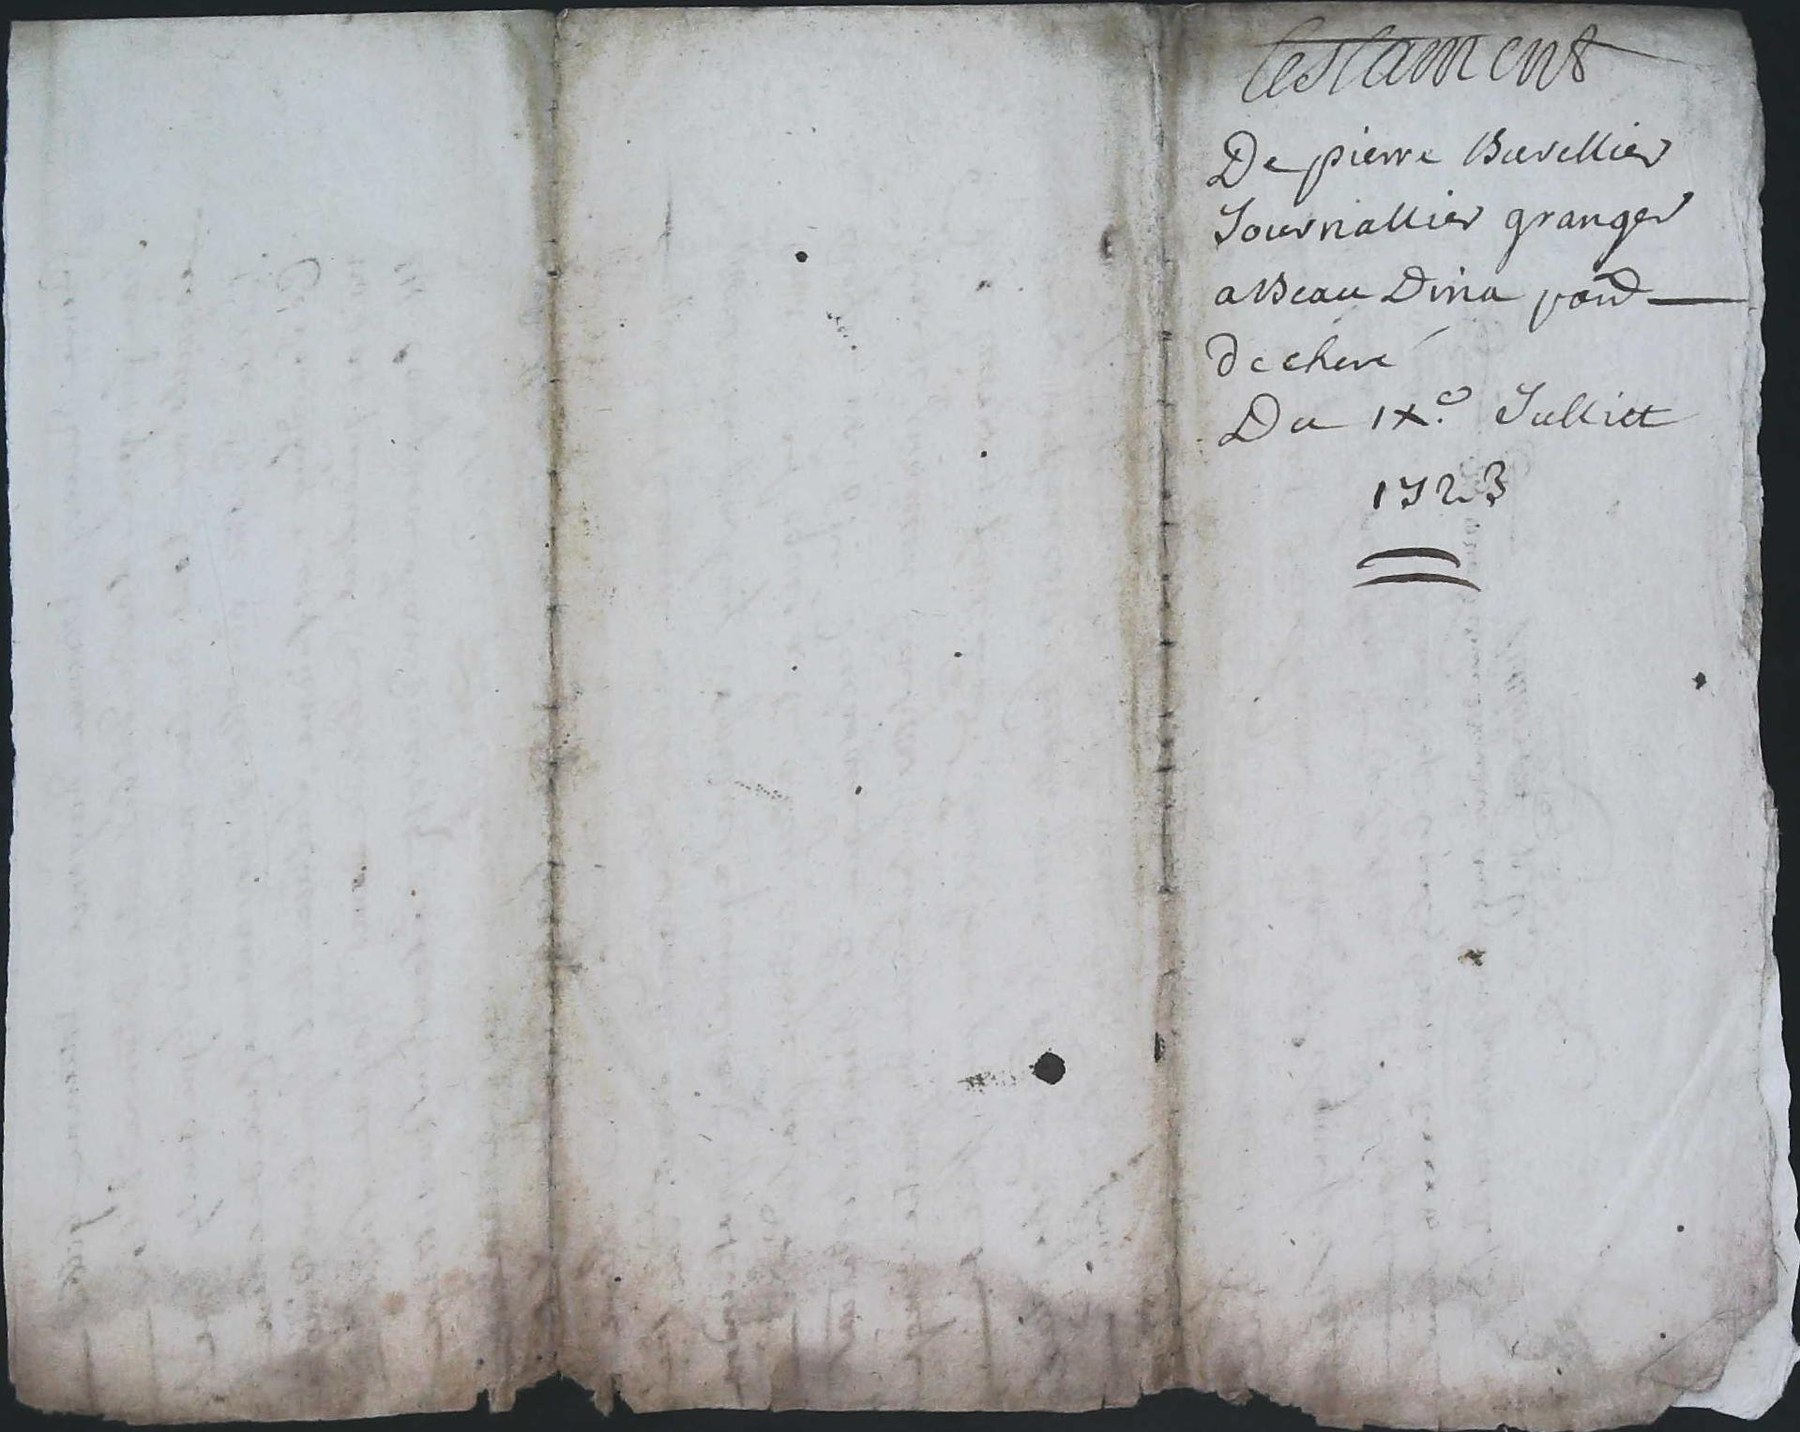 testament
De pierre Buvellier
Journallier granger
a Beau Dina paud
de chere
Du IXe. Julliet
1723